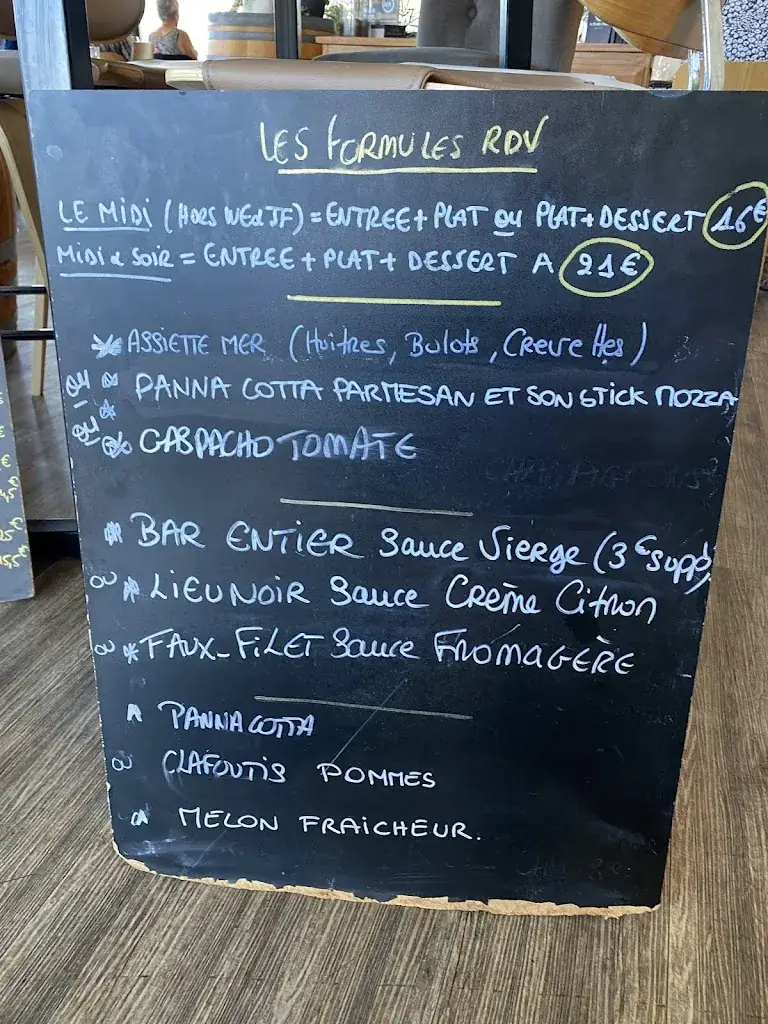 LES FORMULES RDV
LE MIDI (HORS WE & JF) = ENTREE + PLAT OU PLAT + DESSERT 16€
MIDI & SOIR = ENTREE + PLAT + DESSERT A 21€
* ASSIETTE MER (Huitres, Bulots, Crevettes)
OU * PANNA COTTA PARMESAN ET SON STICK MOZZA
OU * GASPACHO TOMATE
* BAR ENTIER Sauce Vierge (3€ supp)
OU * LIEU NOIR Sauce Crème Citron
OU * FAUX-FILET Sauce FROMAGÈRE
PANNA COTTA
OU CLAFOUTIS POMMES
MELON FRAICHEUR.